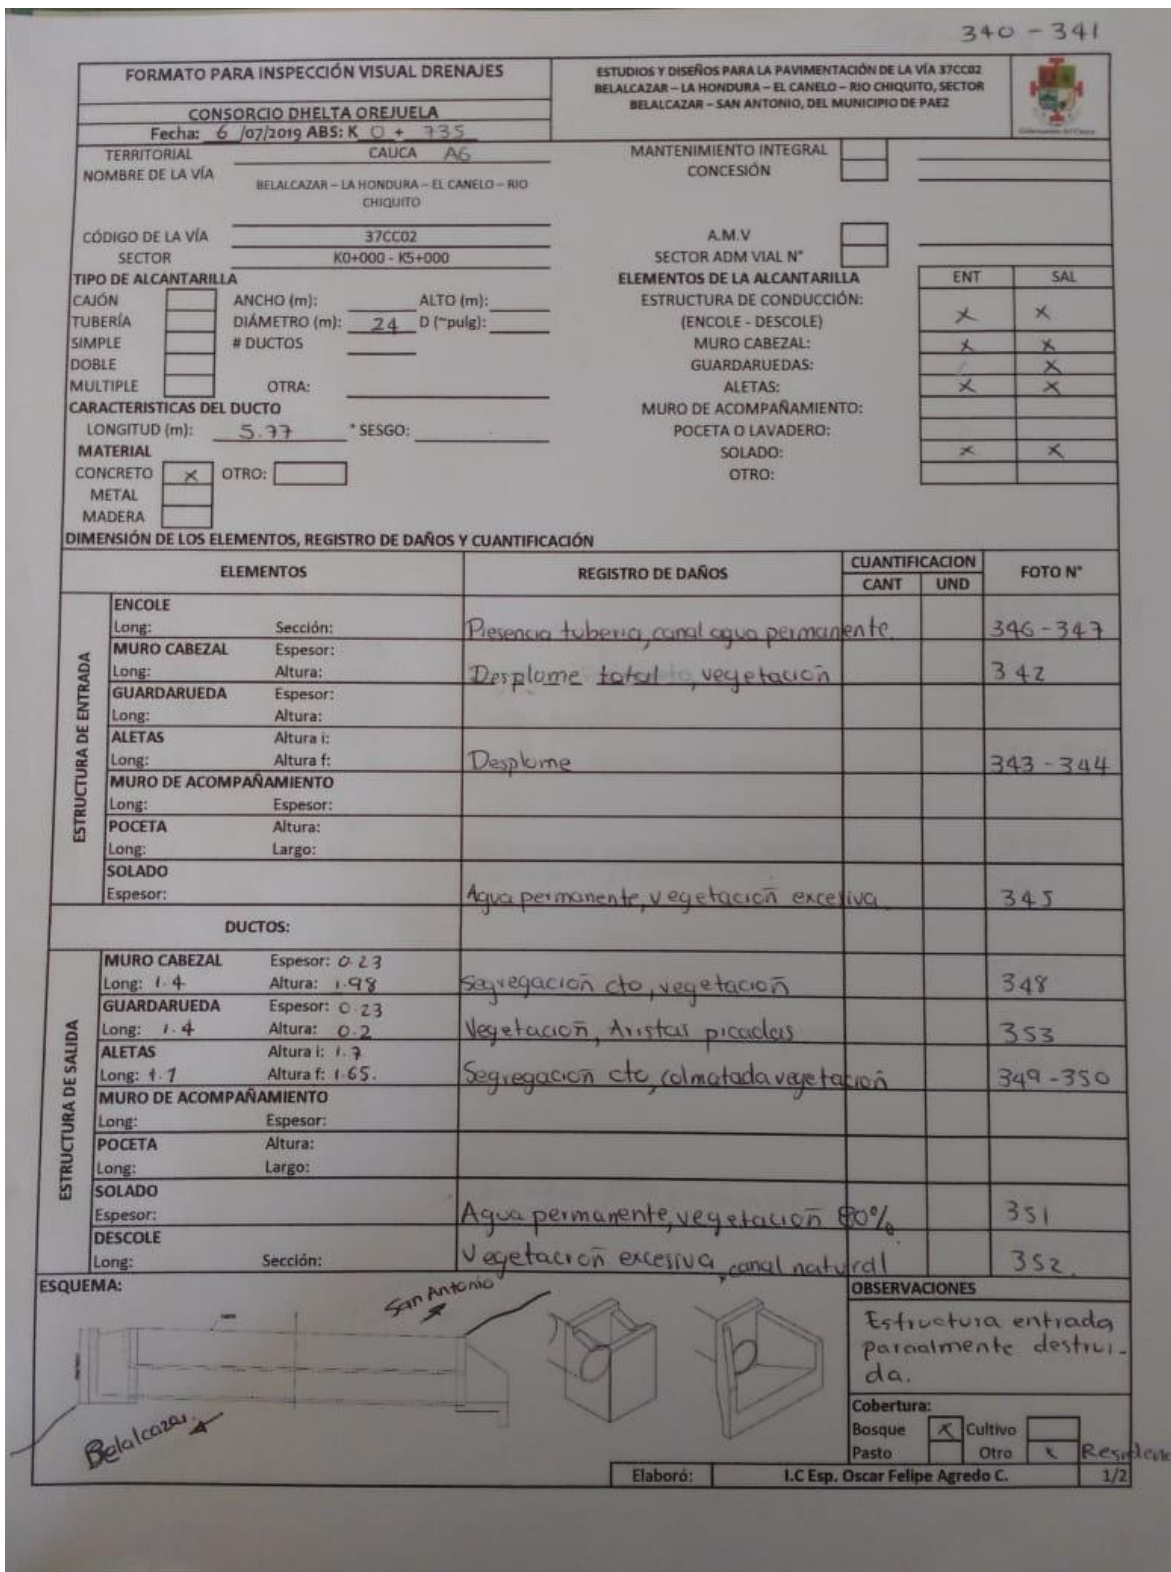 340 - 341
FORMATO PARA INSPECCIÓN VISUAL DRENAJES
CONSORCIO DHELTA OREJUELA
Fecha: 6 /07/2019 ABS: K 0 + 735
ESTUDIOS Y DISEÑOS PARA LA PAVIMENTACIÓN DE LA VÍA 37CC02
BELALCAZAR – LA HONDURA – EL CANELO – RIO CHIQUITO, SECTOR
BELALCAZAR – SAN ANTONIO, DEL MUNICIPIO DE PAEZ
TERRITORIAL CAUCA A6
NOMBRE DE LA VÍA
BELALCAZAR – LA HONDURA – EL CANELO – RIO
CHIQUITO
CÓDIGO DE LA VÍA 37CC02
SECTOR K0+000 - K5+000
MANTENIMIENTO INTEGRAL
CONCESIÓN
A.M.V
SECTOR ADM VIAL N°
TIPO DE ALCANTARILLA
CAJÓN ANCHO (m): ALTO (m):
TUBERÍA DIÁMETRO (m): 24 D (~pulg):
SIMPLE # DUCTOS
DOBLE
MULTIPLE OTRA:
CARACTERISTICAS DEL DUCTO
LONGITUD (m): 5.77 ° SESGO:
MATERIAL
CONCRETO X OTRO:
METAL
MADERA
ELEMENTOS DE LA ALCANTARILLA ENT SAL
ESTRUCTURA DE CONDUCCIÓN:
(ENCOLE - DESCOLE) X X
MURO CABEZAL: X X
GUARDARUEDAS: X
ALETAS: X X
MURO DE ACOMPAÑAMIENTO:
POCETA O LAVADERO:
SOLADO: X X
OTRO:
DIMENSIÓN DE LOS ELEMENTOS, REGISTRO DE DAÑOS Y CUANTIFICACIÓN
ELEMENTOS REGISTRO DE DAÑOS CUANTIFICACION FOTO N°
CANT UND
ESTRUCTURA DE ENTRADA
ENCOLE
Long: Sección: Presencia tuberia, canal agua permanente. 346 - 347
MURO CABEZAL Espesor:
Long: Altura: Desplome total, vegetación 342
GUARDARUEDA Espesor:
Long: Altura:
ALETAS Altura i:
Long: Altura f: Desplome 343 - 344
MURO DE ACOMPAÑAMIENTO
Long: Espesor:
POCETA Altura:
Long: Largo:
SOLADO
Espesor: Agua permanente, vegetación excesiva 345
DUCTOS:
ESTRUCTURA DE SALIDA
MURO CABEZAL Espesor: 0.23
Long: 1.4 Altura: 1.98 Segregación cto, vegetación 348
GUARDARUEDA Espesor: 0.23
Long: 1.4 Altura: 0.2 Vegetación, Aristas picadas 353
ALETAS Altura i: 1.7
Long: 1.7 Altura f: 1.65. Segregación cto, colmatada vegetación 349-350
MURO DE ACOMPAÑAMIENTO
Long: Espesor:
POCETA Altura:
Long: Largo:
SOLADO
Espesor: Agua permanente, vegetación 80% 351
DESCOLE
Long: Sección: Vegetación excesiva, canal natural 352.
ESQUEMA:
San Antonio
Belalcazar
OBSERVACIONES
Estructura entrada
parcialmente destrui-
da.
Cobertura:
Bosque X Cultivo
Pasto Otro X
Elaboró: I.C Esp. Oscar Felipe Agredo C. 1/2